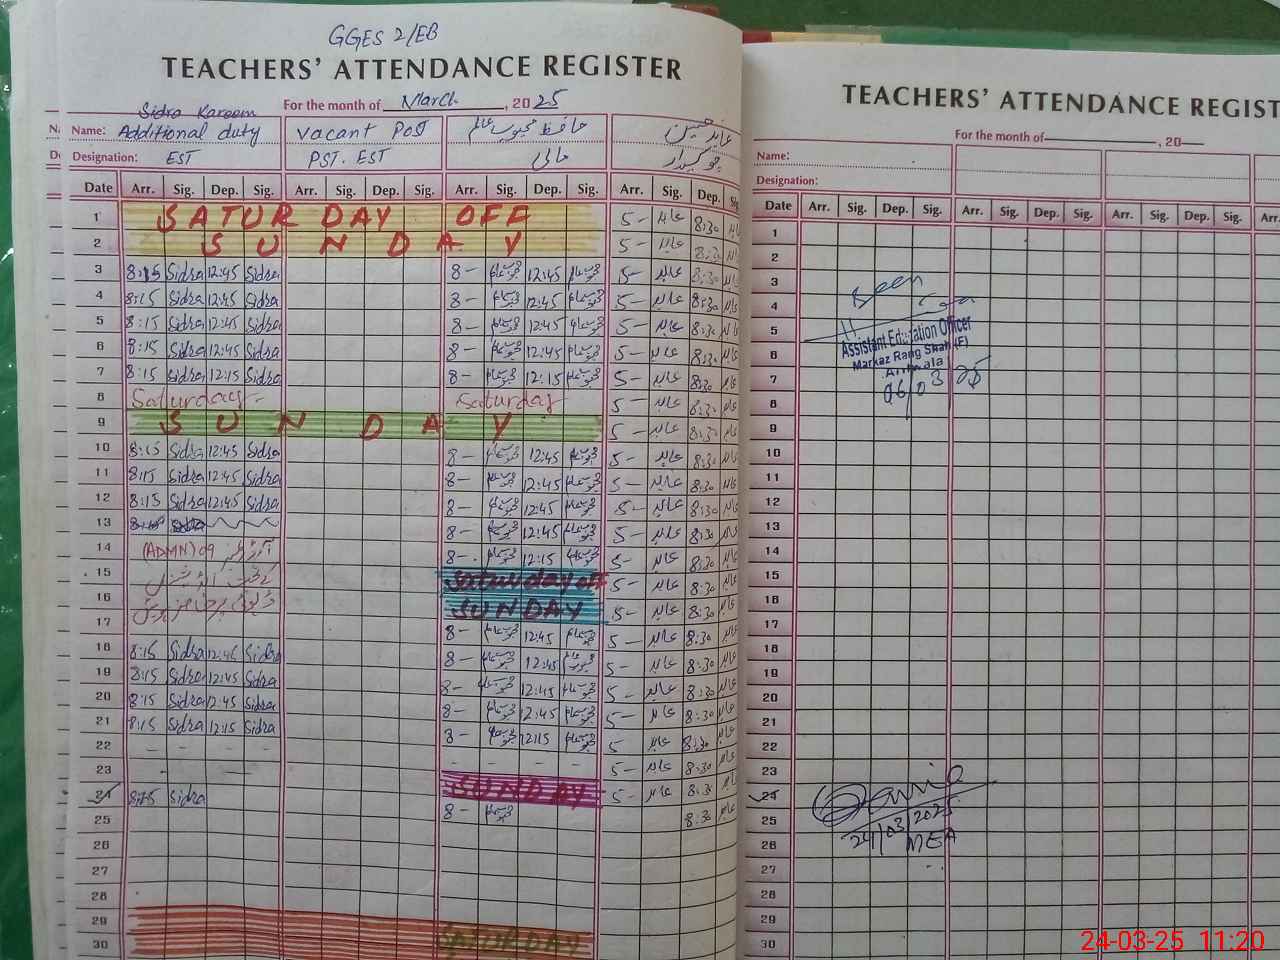 GGES 2/EB
TEACHERS' ATTENDANCE REGISTER
For the month of March, 2025
Sidra Kareem
Name: Additional duty vacant Post حافظ محبوب عالم عابد حسین
Designation: EST PST. EST مالی چوکیدار
Date Arr. Sig. Dep. Sig. Arr. Sig. Dep. Sig. Arr. Sig. Dep. Sig. Arr. Sig. Dep. Sig.
1 SATURDAY OFF 5- عابد 8:30
2 SUNDAY 5- عابد 8:30
3 8:15 Sidra 12:45 Sidra 8- 12:45 5- عابد 8:30
4 8:15 Sidra 12:45 Sidra 8- 12:45 5- عابد 8:30
5 8:15 Sidra 12:45 Sidra 8- 12:45 5- عابد 8:30
6 8:15 Sidra 12:45 Sidra 8- 12:45 5- عابد 8:30
7 8:15 Sidra 12:15 Sidra 8- 12:15 5- عابد 8:30
8 Saturday Saturday 5- عابد 8:30
9 SUNDAY 5- عابد 8:30
10 8:15 Sidra 12:45 Sidra 8- 12:45 5- عابد 8:30
11 8:15 Sidra 12:45 Sidra 8- 12:45 5- عابد 8:30
12 8:15 Sidra 12:45 Sidra 8- 12:45 5- عابد 8:30
13 8- 12:45 5- عابد 8:30
14 (ADMN) 09 آرڈر نمبر 8- 12:15 5- عابد 8:30
15 Saturday off 5- عابد 8:30
16 SUNDAY 5- عابد 8:30
17 8- 12:45 5- عابد 8:30
18 8:15 Sidra 12:45 Sidra 8- 12:45 5- عابد 8:30
19 8:15 Sidra 12:45 Sidra 8- 12:45 5- عابد 8:30
20 8:15 Sidra 12:45 Sidra 8- 12:45 5- عابد 8:30
21 8:15 Sidra 12:15 Sidra 8- 12:15 5- عابد 8:30
22 5- عابد 8:30
23 SUNDAY 5- عابد 8:30
24 8:15 Sidra 8- 8:30
25
26
27
28
29
30 SATURDAY
TEACHERS' ATTENDANCE REGIST
For the month of , 20
Name:
Designation:
Date Arr. Sig. Dep. Sig. Arr. Sig. Dep. Sig. Arr. Sig. Dep. Sig.
1
2
3
Seen
4
5
Assistant Education Officer
6
Markaz Rang Shah (F)
7
Arifwala
06/03/25
8
9
10
11
12
13
14
15
16
17
18
19
20
21
22
23
24
25
24/03/2025
26
MEA
27
28
29
30
24-03-25 11:20